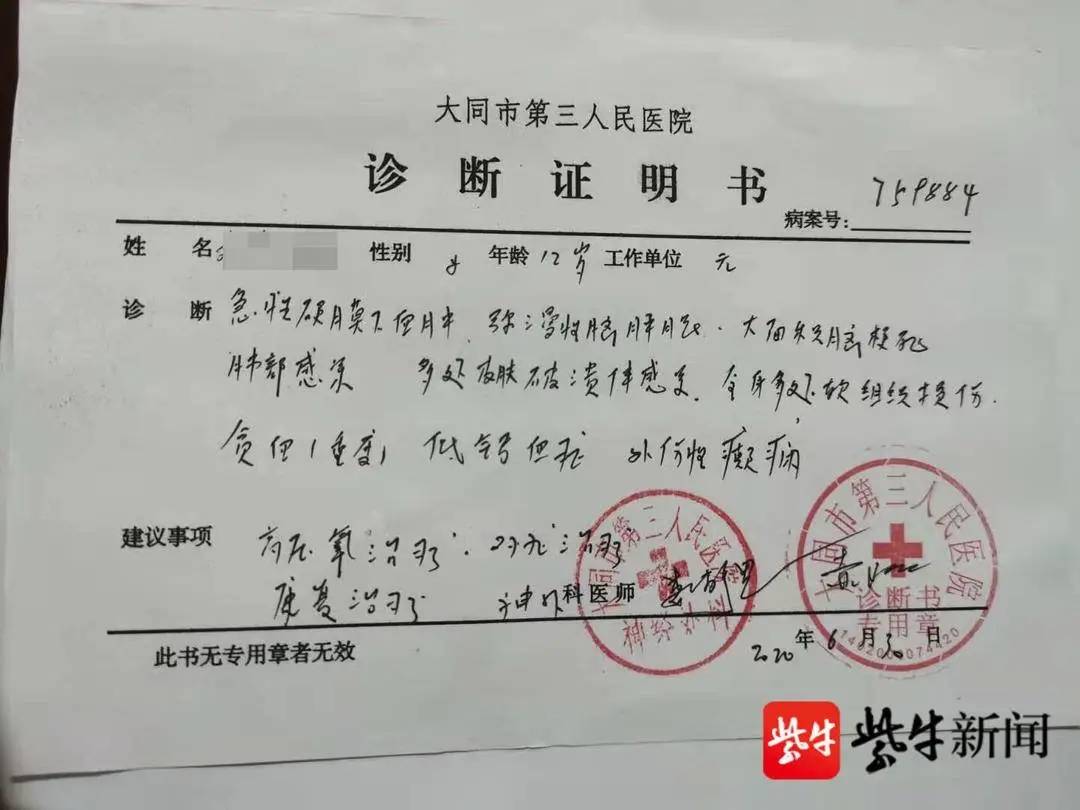 大同市第三人民医院
诊断证明书
病案号: 759884
姓名 性别 女 年龄 12岁 工作单位 无
诊断 急性硬膜下血肿、弥漫性脑肿胀、大面积脑梗死
肺部感染 多处皮肤破溃伴感染、全身多处软组织损伤、
贫血(重度) 低钙血症 外伤性癫痫
建议事项 高压氧治疗、对症治疗
康复治疗 神外科医师
2020年6月30日
此书无专用章者无效
大同市第三人民医院
神经外科
大同市第三人民医院
诊断书
专用章
1402000074420
紫牛 紫牛新闻